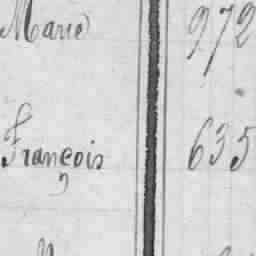 Marie 972
François 635